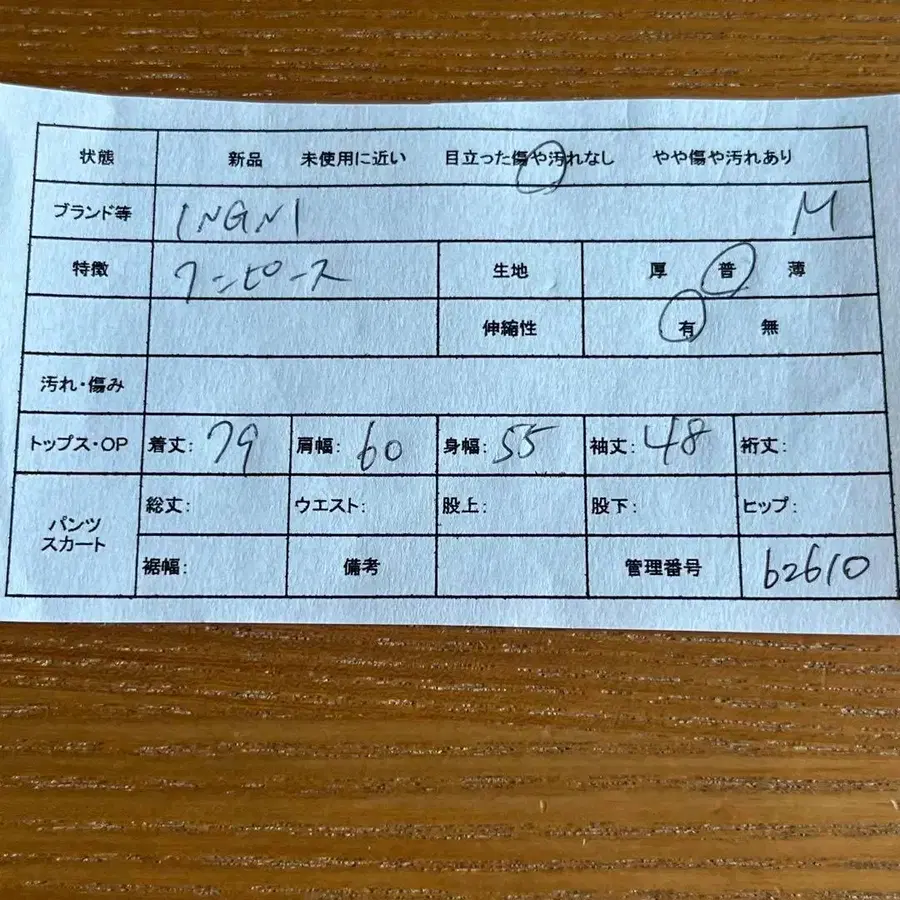 状態 新品 未使用に近い 目立った傷や汚れなし やや傷や汚れあり
ブランド等 INGNI M
特徴 ワンピース 生地 厚 普 薄
伸縮性 有 無
汚れ・傷み
トップス・OP 着丈: 79 肩幅: 60 身幅: 55 袖丈: 48 裄丈:
パンツ スカート 総丈: ウエスト: 股上: 股下: ヒップ:
裾幅: 備考 管理番号 62610